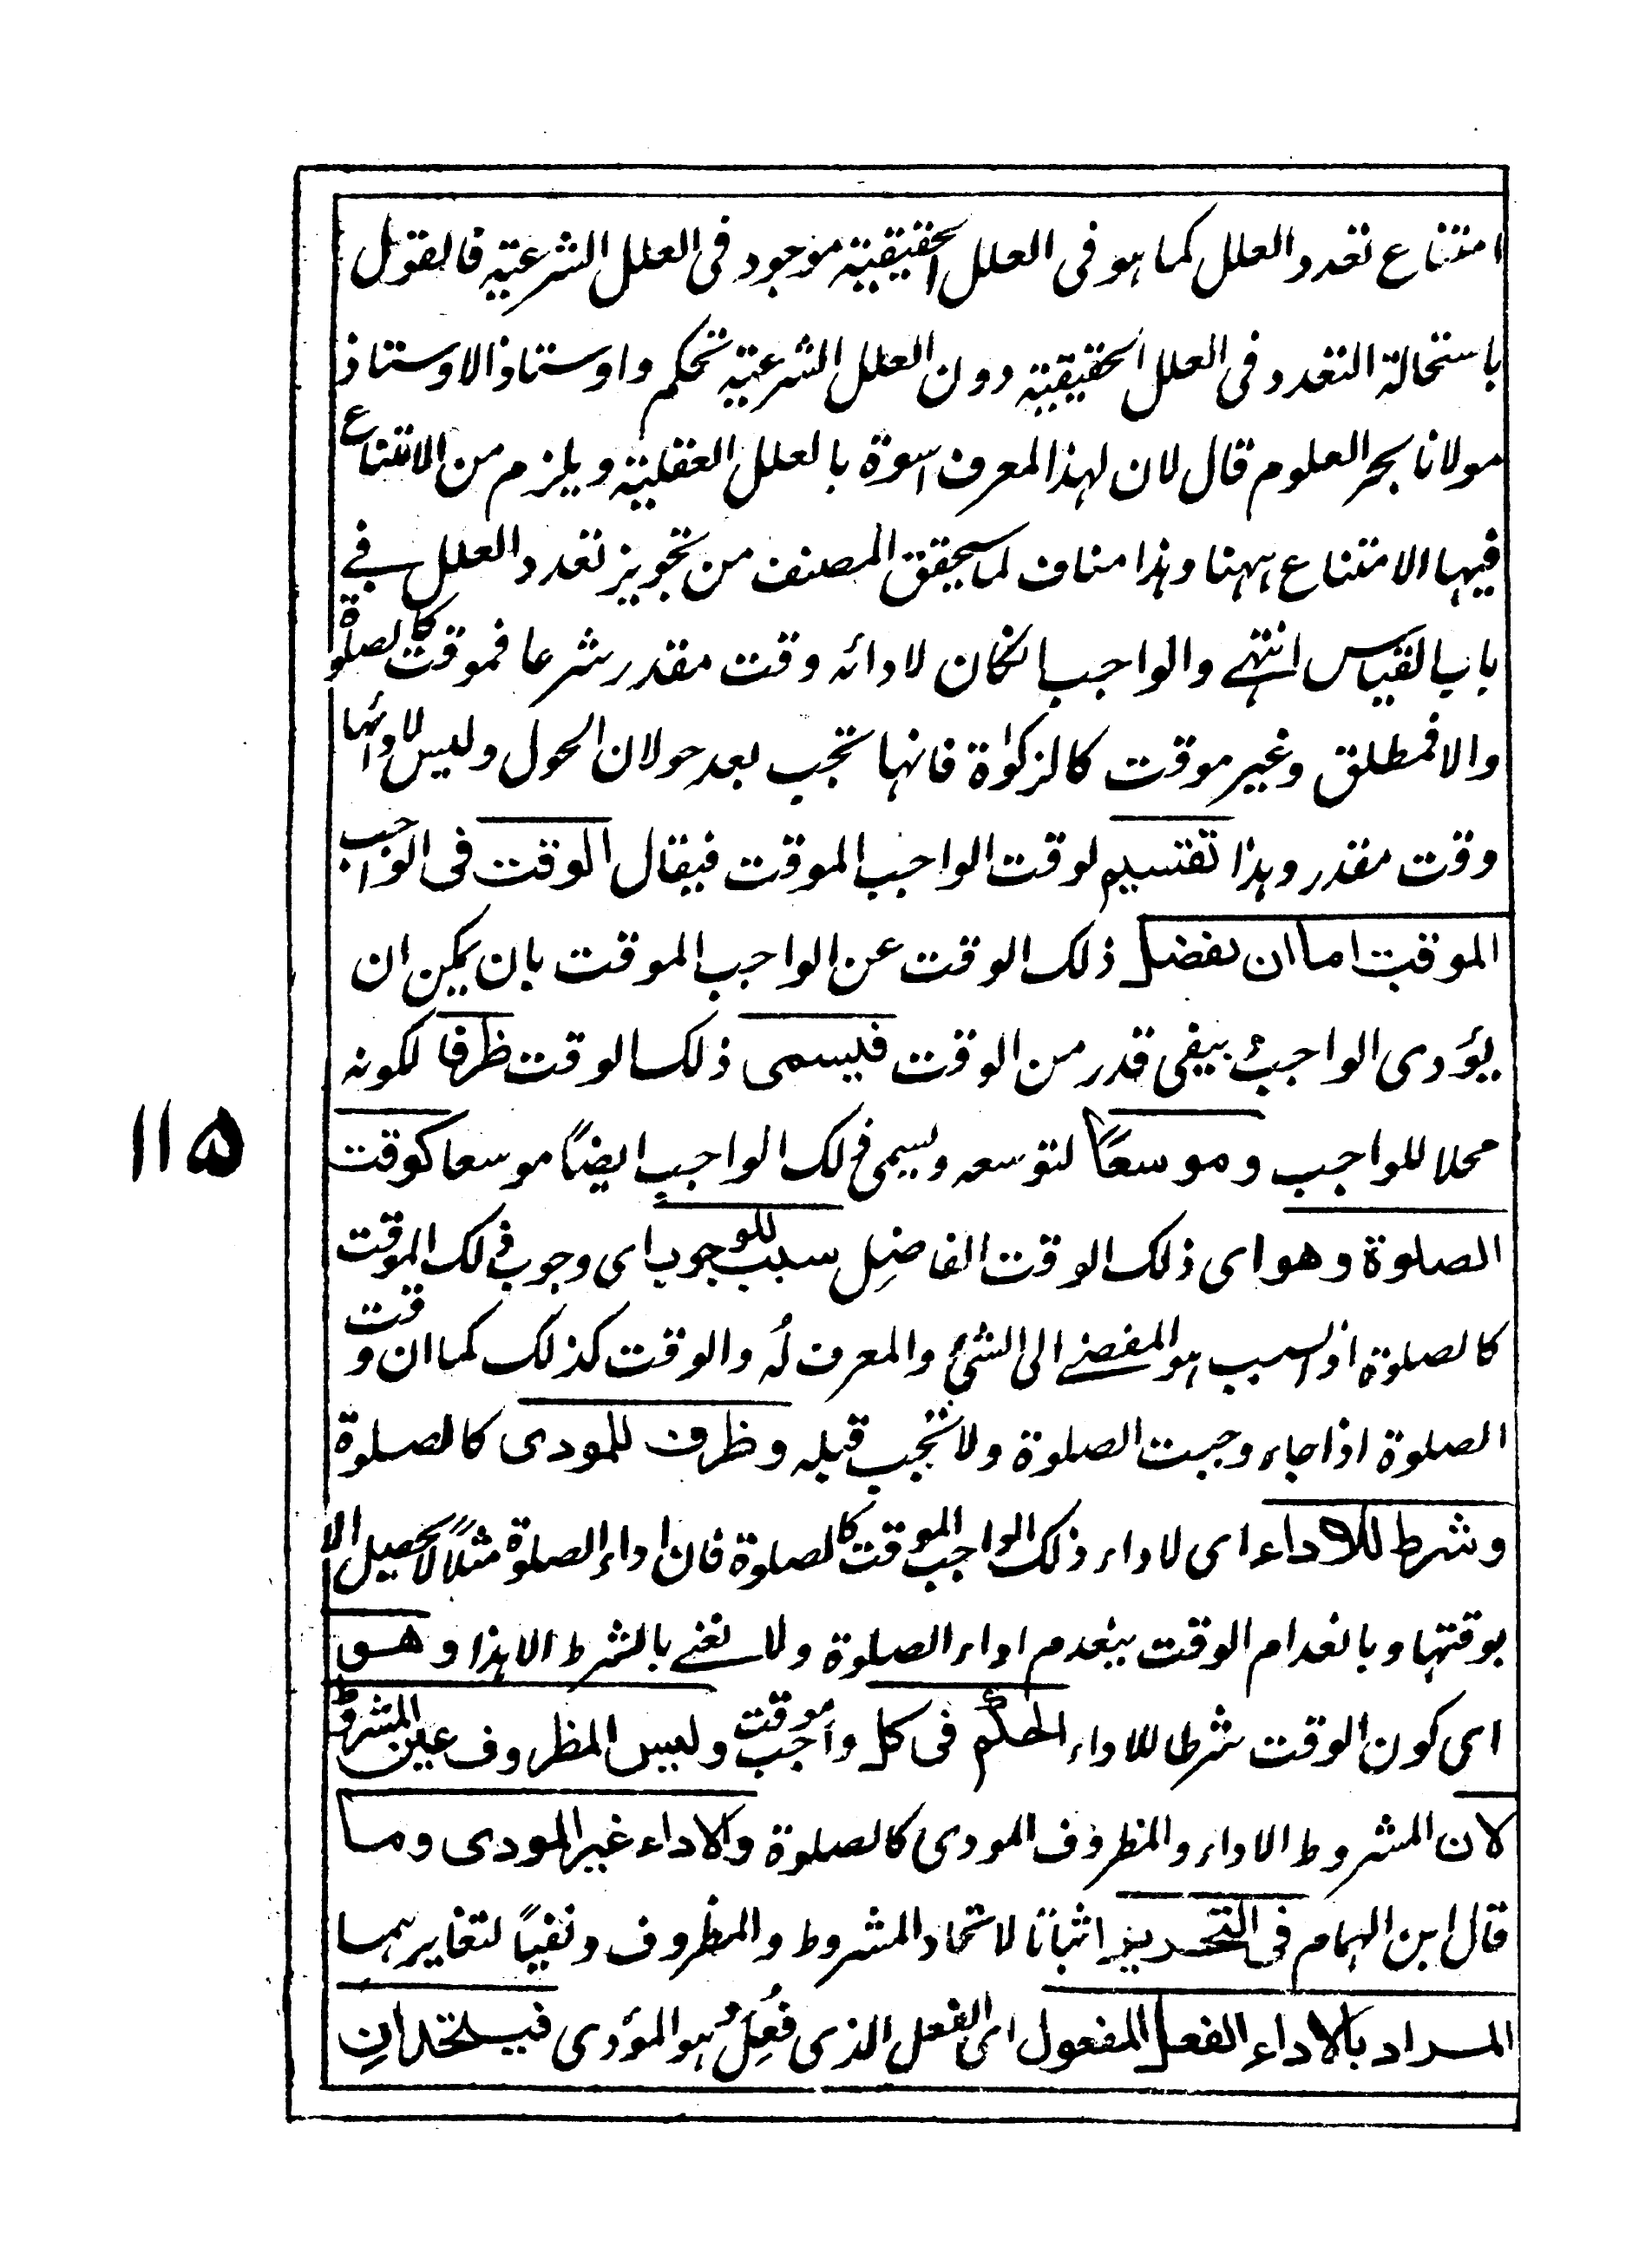 امتناع تعدد العلل كما هو فى العلل الحقيقية موجود فى العلل الشرعية فالقول
باستحالة التعدد فى العلل الحقيقية دون العلل الشرعية تحكم واوستاذ الاوستاذ
مولانا بحر العلوم قال لان لهذا المعرف اسوة بالعلل العقلية ويلزم من الامتناع
فيها الامتناع ههنا وهذا مناف لما سيحقق المصنف من تجويز تعدد العلل فى
باب القياس انتهى والواجب انكان لادائه وقت مقدر شرعا فموقت كالصلوة
والا فمطلق وغير موقت كالزكوة فانها تجب بعد حولان الحول وليس لادائها
وقت مقدر وهذا تقسيم لوقت الواجب الموقت فيقال الوقت فى الواجب
الموقت اما ان يفضل ذلك الوقت عن الواجب الموقت بان يمكن ان
يؤدى الواجب و يبقى قدر من الوقت فيسمى ذلك الوقت ظرفا لكونه
محلا للواجب وموسعًا لتوسعه ويسمى ذلك الواجب ايضًا موسعا كوقت
الصلوة وهو اى ذلك الوقت الفاضل سبب للوجوب اى وجوب ذلك الموقت
كالصلوة اذ السبب هو المفضى الى الشئ والمعرف لُه والوقت كذلك كما ان وقت
الصلوة اذا جاء وجبت الصلوة ولا تجب قبله وظرف للمودى كالصلوة
وشرط للاداء اى لاداء ذلك الواجب الموقت كالصلوة فان اداء الصلوة مثلًا لا يحصيل الا
بوقتها وبانعدام الوقت ينعدم اداء الصلوة ولا نعنى بالشرط الا هذا وهو
اى كون الوقت شرطا للاداء الحكم فى كل واجب موقت وليس المظروف عين المشروط
لان المشروط الاداء والمظروف المودى كالصلوة والاداء غير المودى وما
قال ابن الهمام فى التحرير اثباتا لاتحاد المشروط والمظروف ونفيًا لتغايرهما
المراد بالاداء الفعل المفعول اى الفعل الذى فُعِلَ هو المؤدى فيتحدانِ
١١٥